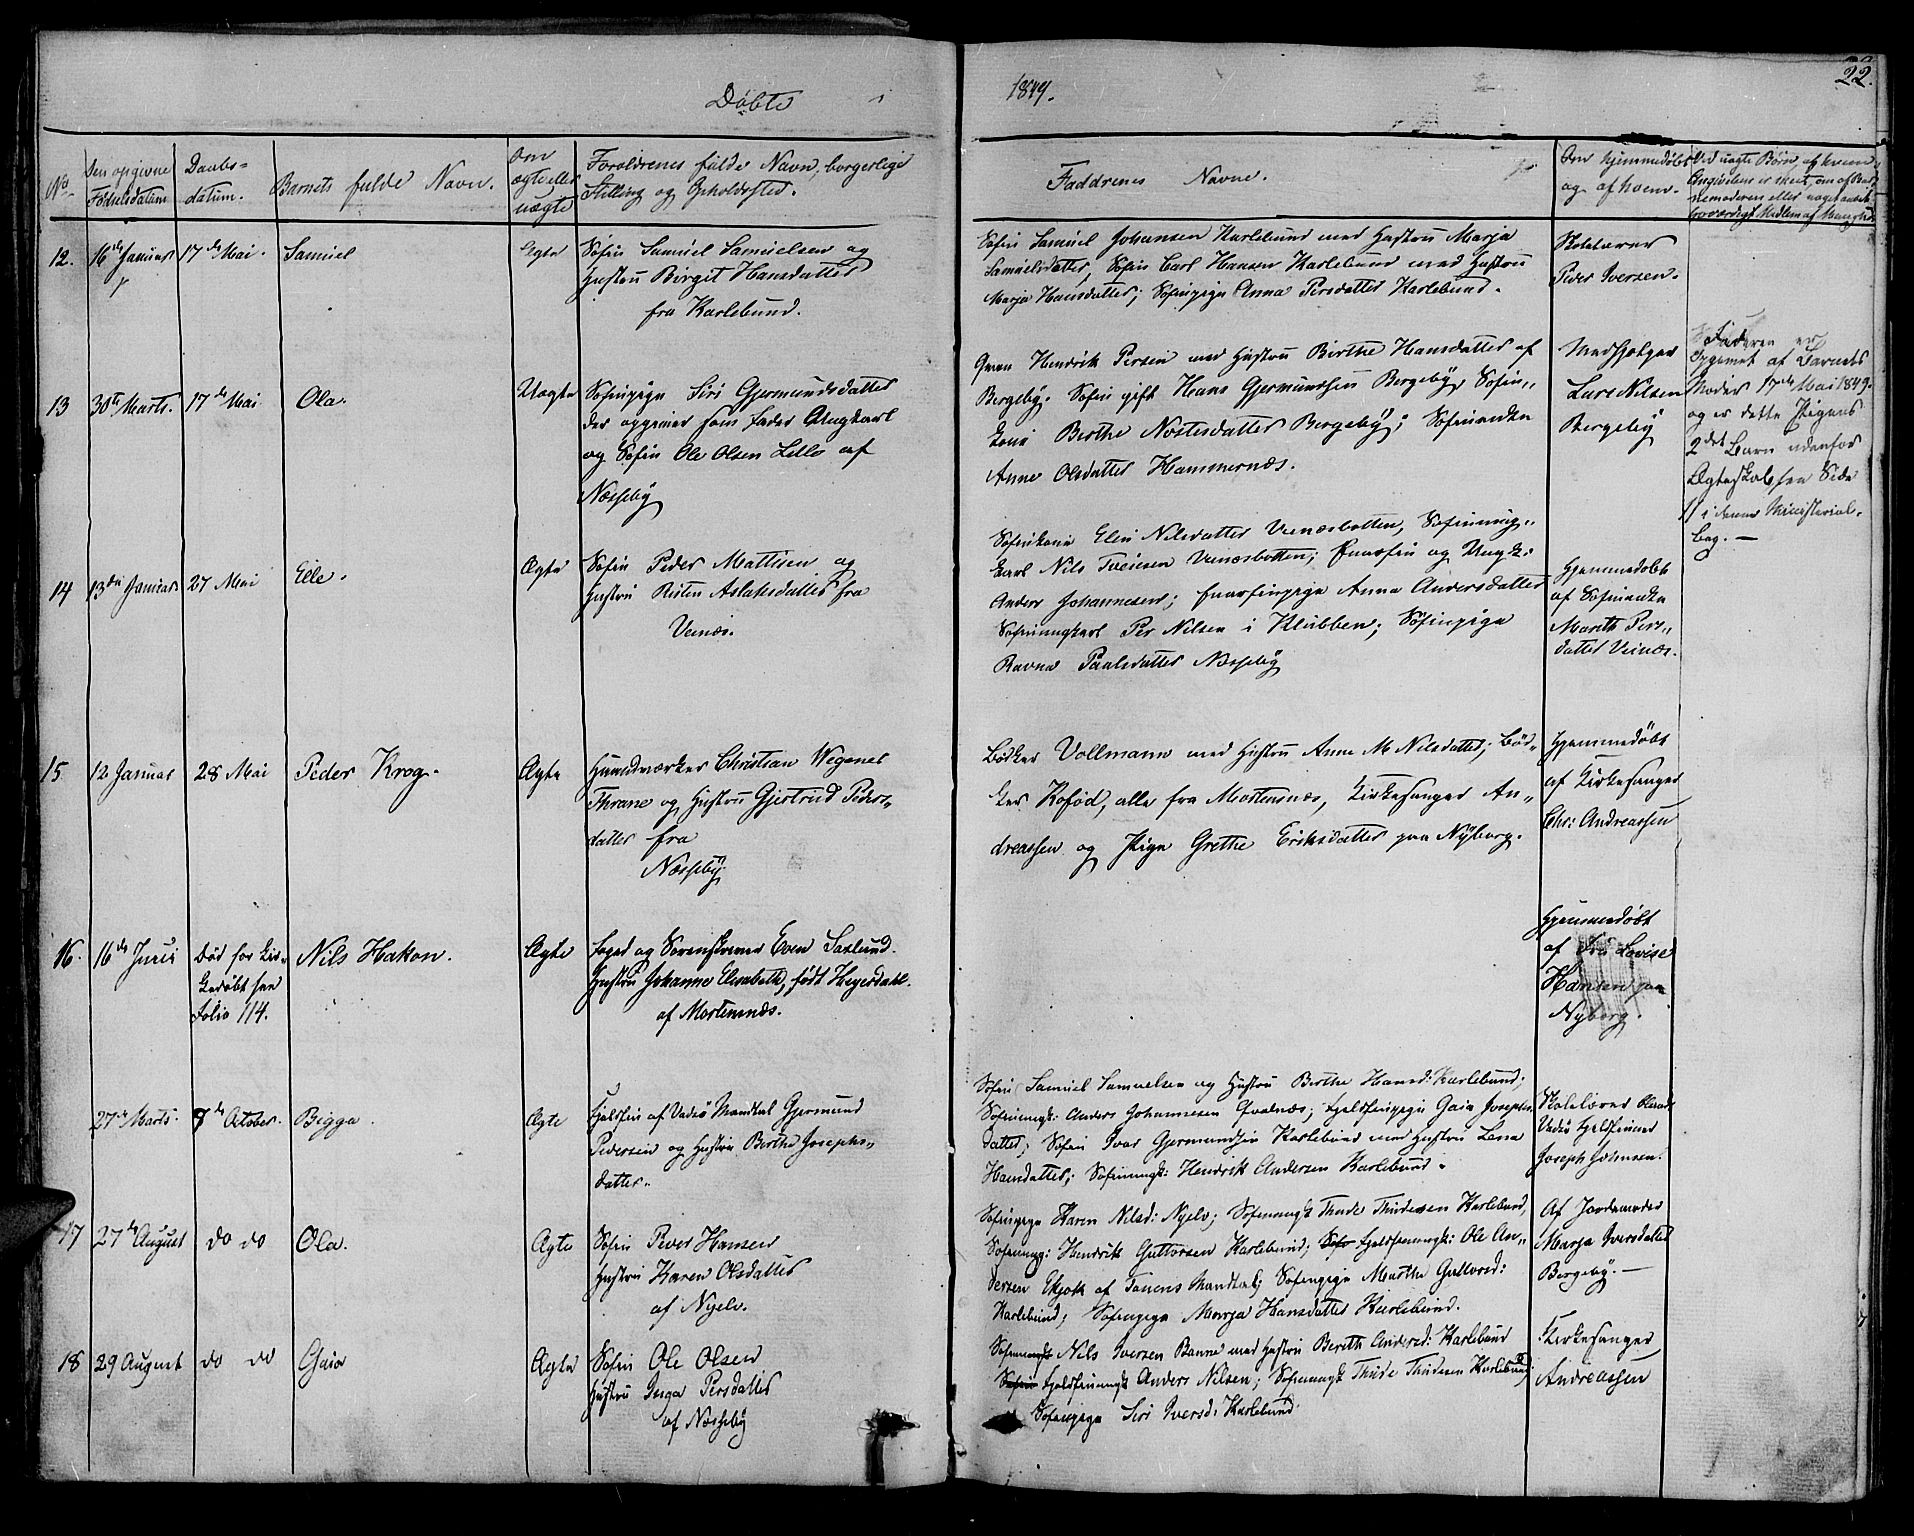 Døbte
1849.
22.
No.
Den opgivne
Fødselsdatum
Daabs-
datum.
Barnets fulde Navn.
Om
ægte eller
uægte
Forældrenes fulde Navn, borgerlige
Stilling og Opholdssted.
Faddrenes Navne.
Om hjemmedøbt
og af hvem.
Ved uægte Børn, af hvem
Angivelsen er skeet, om af Bar-
nemoderen eller noget andet
troværdigt Medlem af Menighed.
12.
16de Januar
17de Mai.
Samuel
Ægte
Søfin Samuel Samuelsen og
Hustru Birgit Hansdatter
fra Karlebund.
Søfin Samuel Johansen Karlebund med Hustru Marja
Samuelsdatter, Søfin Carl Hansen Karlebund med Hustru
Marja Hansdatter; Søfinpige Anna Persdatter Karlebund.
Skolelærer
Peder Iversen.
13
30te Marts.
17de Mai
Ola.
Uægte
Søfinpige Siri Gjermundsdatter
der opgiver som Fader Ungkarl
og Søfin Ole Olsen Lille af
Næsseby
Qvæn Hendrik Persen med Hustru Birthe Hansdatter af
Bergeby. Søfin gift Hans Gjermundsen Bergeby, Søfin-
kone Birthe Nostesdatter Bergeby; Søfinenke
Anne Olsdatter Hammernæs.
Medhjælper
Lars Nilsen
Bergeby
Faderen er
opgivet af Barnets
Moder 17de Mai 1849.
og er dette Pigens
2det Barn udenfor
Ægteskab see Side
11 i denne Ministerial-
bog. —
14
13de Januar
27 Mai
Elle.
Ægte
Søfin Peder Mattisen og
Hustru Risten Aslaksdatter fra
Veinæs.
Søfinkone Elen Nilsdatter Veinæsbotten, Søfinung-
karl Nils Iversen Veinæsbotten; Enarefin og Ungk:
Anders Johannesen; Enarfinpige Anna Andersdatter
Søfinungkarl Per Nilsen i Klubben; Søfinpige
Ravna Paalsdatter Næsseby
Hjemmedøbt
af Søfinenke
Marith Pers-
datter Veinæs.
15
12 Januar
28 Mai
Peder Krog.
Ægte
Haandværker Christian Wegener
Thrane og Hustru Gjertrud Peders-
datter fra
Næsseby.
Bødker Vollmann med Hustru Anne M Nilsdatter; Bød-
ker Kofød, alle fra Mortensnæs, Kirkesanger An-
dreassen og Pige Grethe Eriksdatter paa Nyborg.
Hjemmedøbt
af Kirkesanger
Chr: Andreassen
16.
16de Juni
Død før Kir-
kedøbt see
Folio 114.
Nils Hakon.
Ægte
Foged og Sorenskriver Even Saxlund.
Hustru Johanne Elisabeth, født Heyerdahl.
af Mortensnæs.
Hjemmedøbt
af Fru Lovise
Hansen paa
Nyborg.
27de Marts.
7de October.
Bigga.
Ægte
Fjeldfin af Vadsø Mandtal Gjermund
Pedersen og Hustru Berthe Josephs-
datter.
Søfin Samuel Samuelsen og Hustru Birthe Hansd: Karlebund;
Søfinungk: Anders Johannesen Qvalnæs; Fjeldfinpige Gaia Josephs-
datter; Søfin Ivar Gjermundsen Karlebund med Hustru Lena
Hansdatter; Søfinungk: Hendrik Andersen Karlebund.
Skolelærer
Vadsø Fjeldfinner
Joseph Johnsen.
17
27de August
do do
Ola.
Ægte
Søfin Peder Hansen
Hustru Karen Olsdatter
af Nyelv.
Søfinpige Karen Nilsd: Nyelv; Søfinungk Thude Thudesen Karlebund,
Søfinungk: Hendrik Guttorsen Karlebund; Fjeldfinungk: Ole An-
dersen af Tanens Mandtal; Søfinpige Marthe Guttorsd:
Karlebund; Søfinpige Marja Hansdatter Karlebund.
Af Jordemoder
Marja Iversdatter
Bergeby. —
18
29 August
do do
Gaia
Ægte
Søfin Ole Olsen
Hustru Inga Persdatter
af Næsseby
Søfinungk Nils Iversen Banne med Hustru Berith Andersd: Karlebund
Fjeldfinungk Anders Nilsen; Søfinungk Thude Thudesen Karlebund
Søfinpige Siri Iversd: Karlebund
Kirkesanger
Andreassen